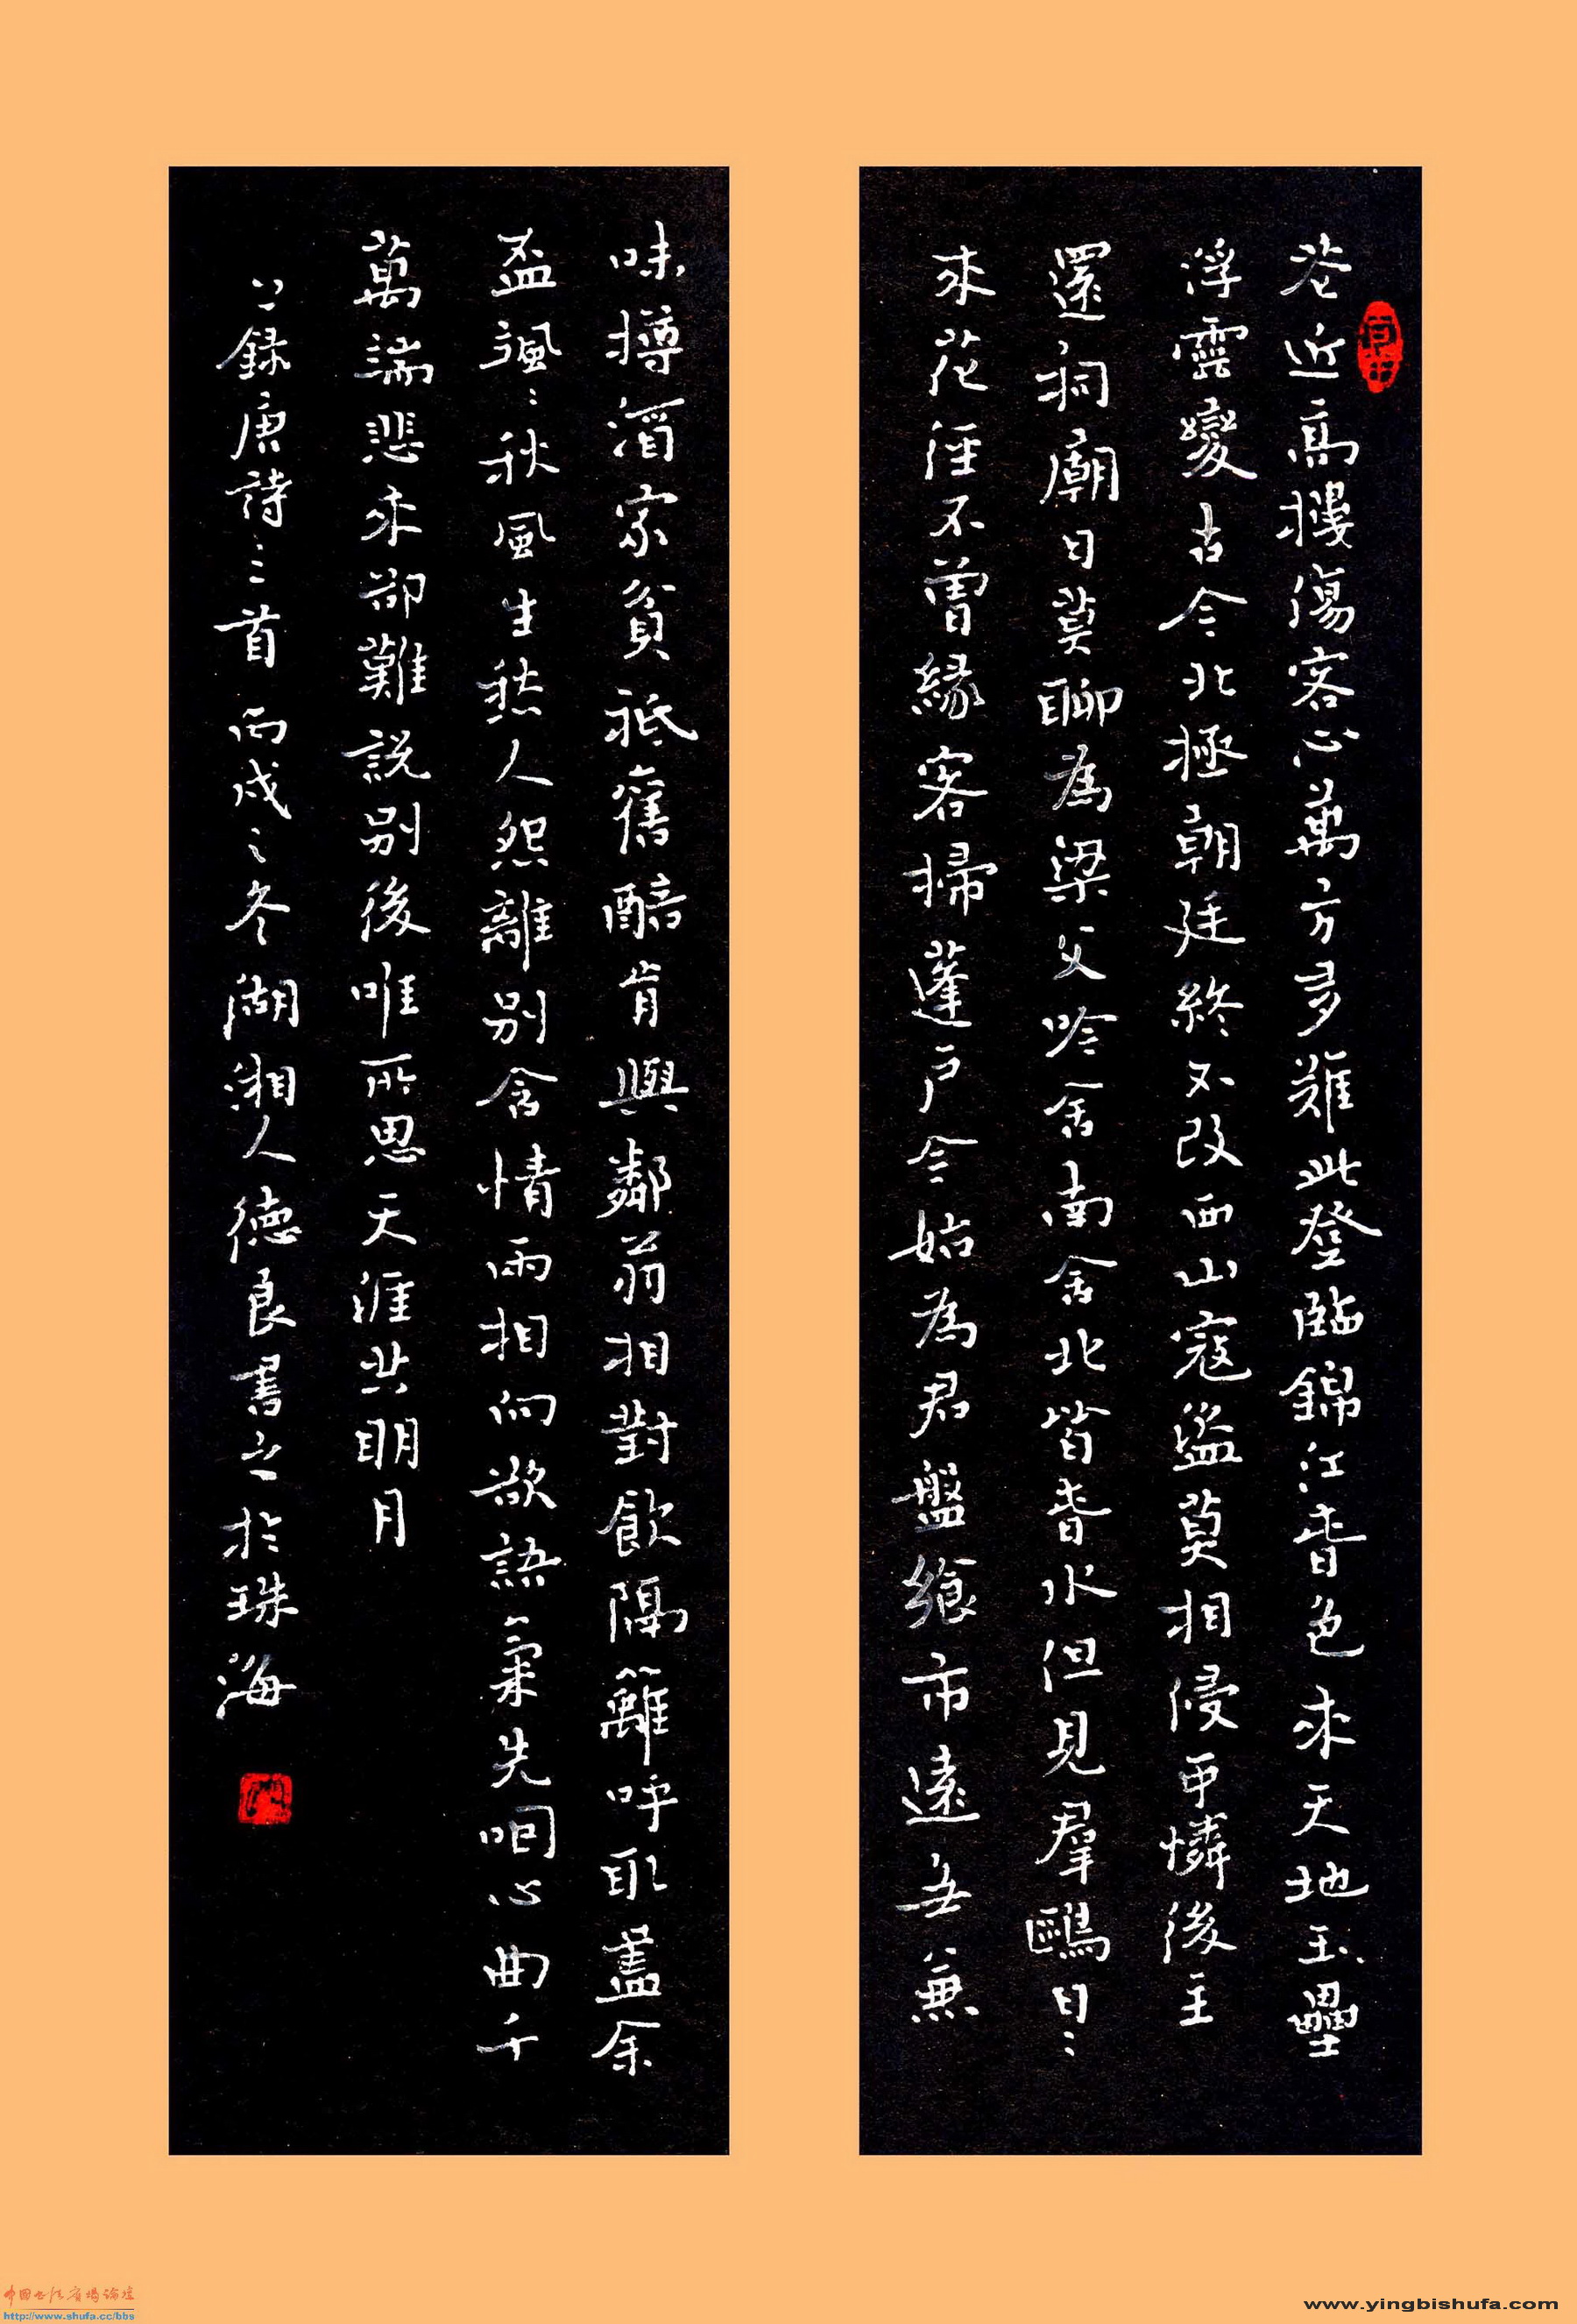 花近高樓傷客心萬方多難此登臨錦江春色來天地玉壘
浮雲變古今北極朝廷終不改西山寇盜莫相侵可憐後主
還祠廟日莫聊為梁父吟舍南舍北皆春水但見羣鷗日〻
來花徑不曾緣客掃蓬戶今始為君盤飧市遠無兼
味樽酒家貧祗舊醅肯與鄰翁相對飲隔籬呼取盡余
盃颯〻秋風生愁人怨離別含情兩相向欲語氣先咽心曲千
萬端悲來卻難說別後唯所思天涯共明月
錄唐詩三首丙戌之冬湖湘人德良書之於珠海
中国书法广场论坛
http://www.shufa.cc/bbs
www.yingbishufa.com